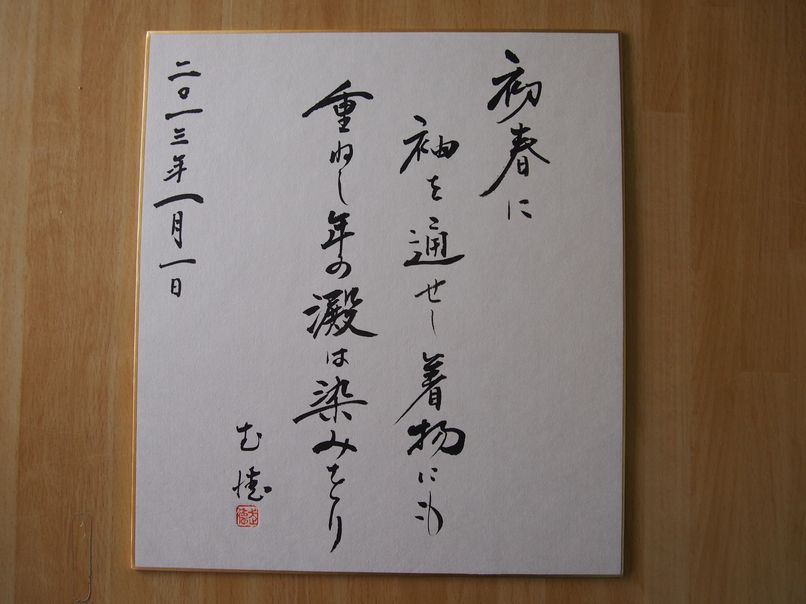 初春に
袖を通せし着物にも
重ねし年の澱は染みをり
二〇一三年一月一日